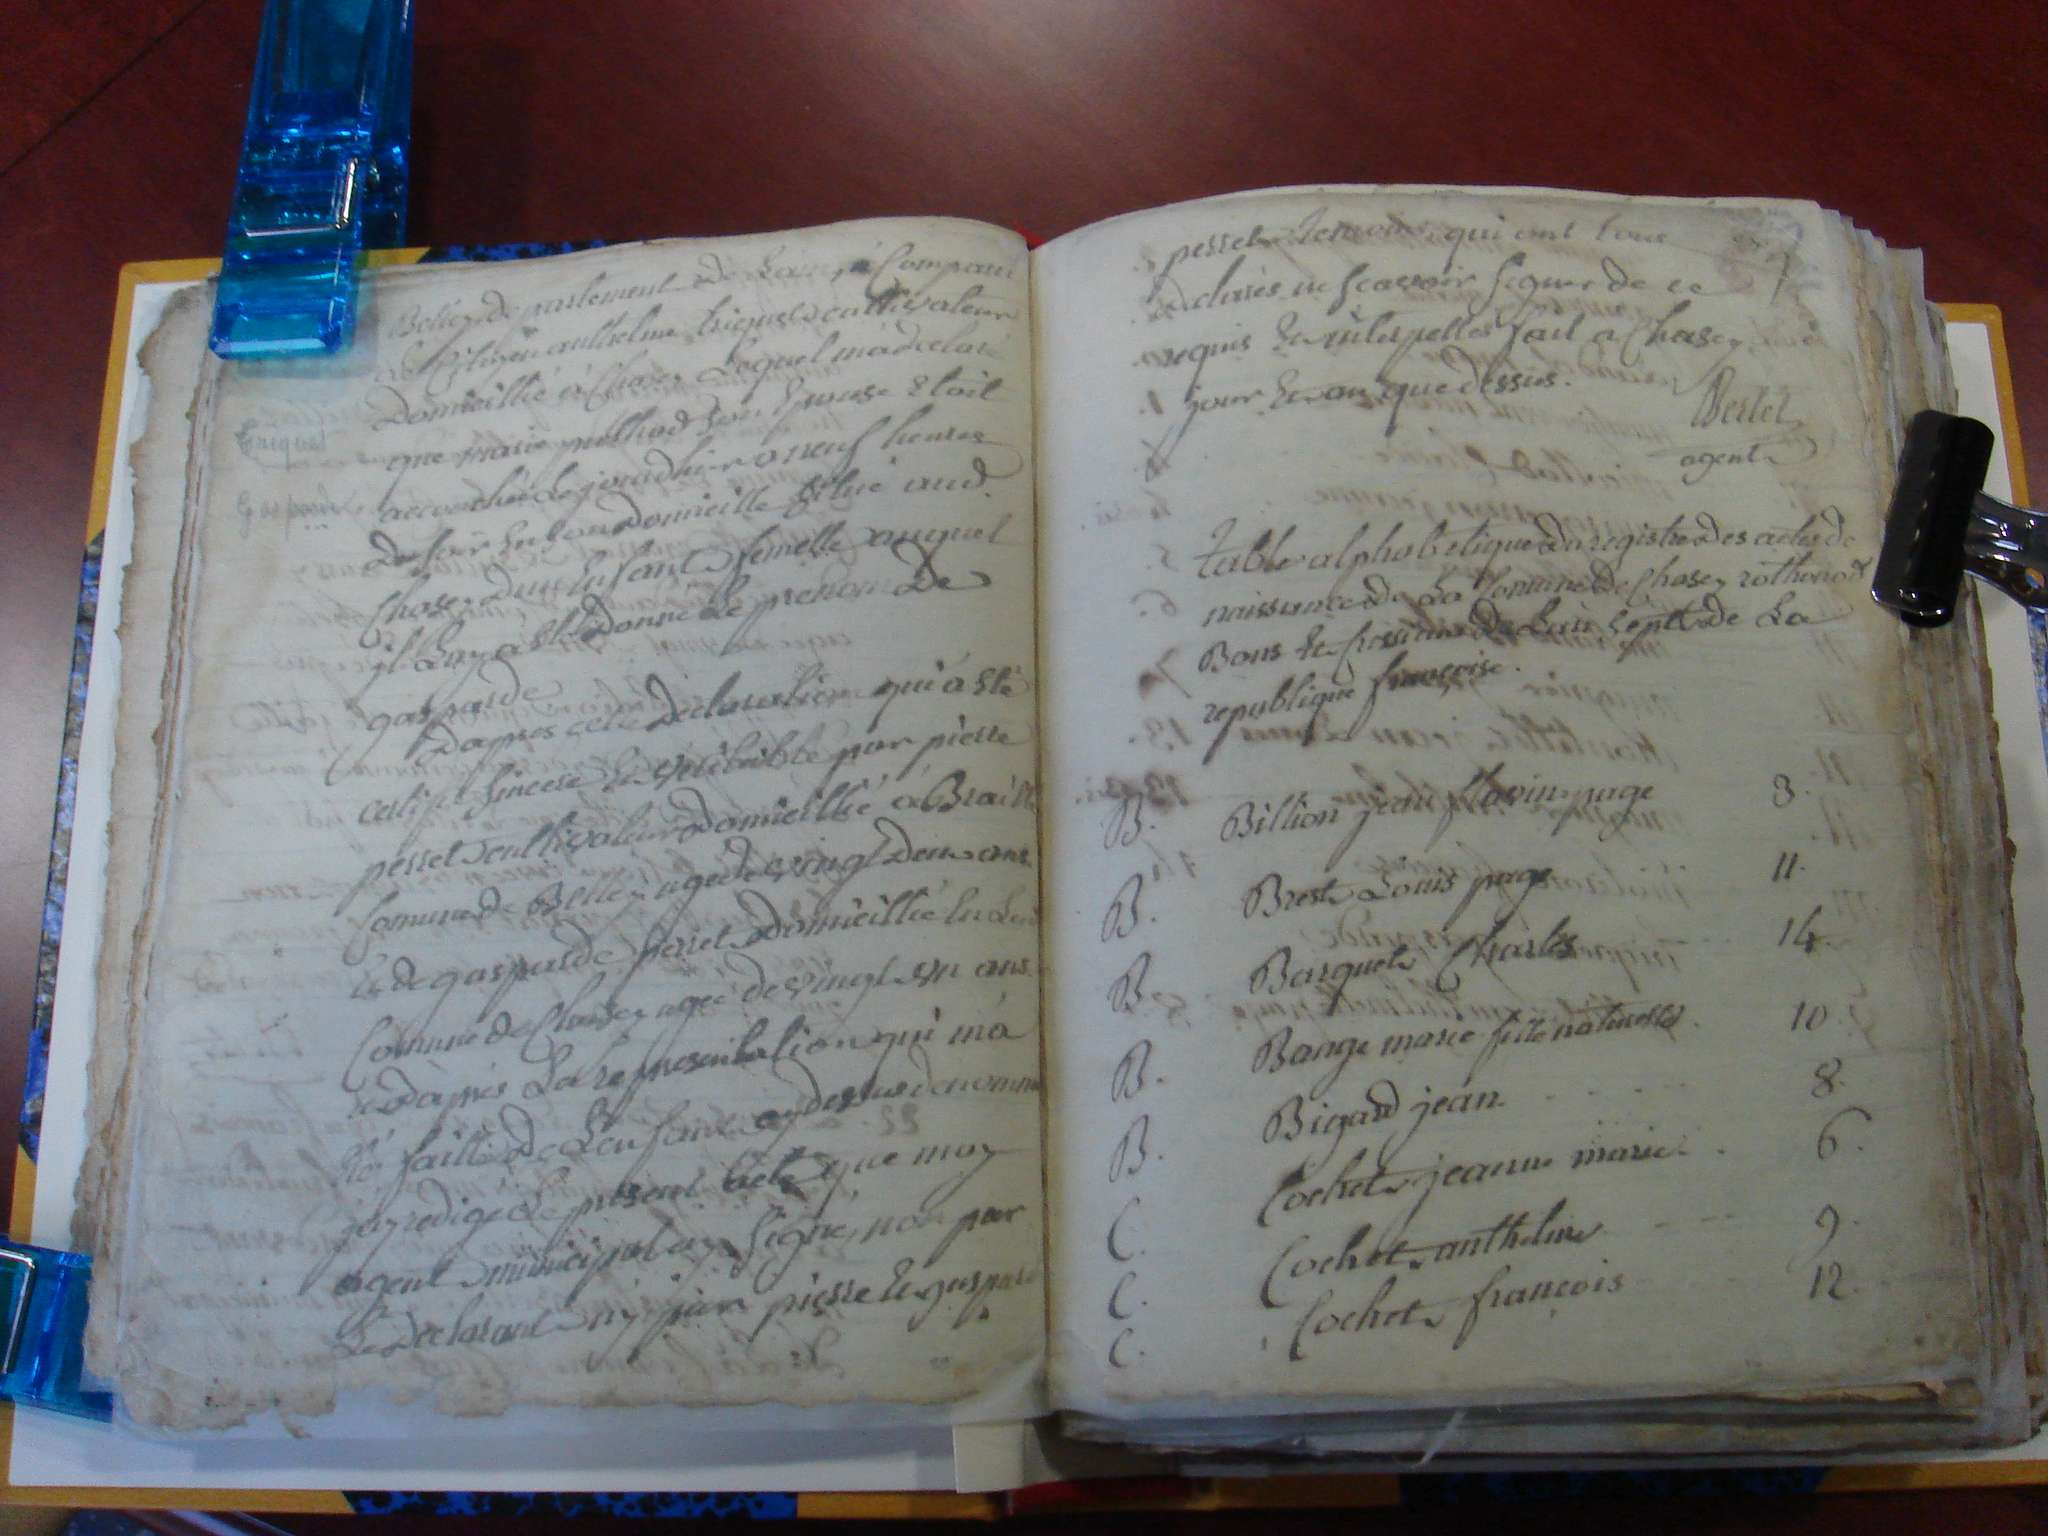 Belley departement de Lain, à Comparu
le Citoyen anthelme triquet cultivateur
Domicillié à Chasey Lequel m'a declaré
que marie son Epouse Etoit
accouchée le jourdhier a neuf heures
du soir En son Domicille Situé aud.
Chasey Dun Enfant femelle auquel
jl Luy a Eté Donné Le prenom De
gasparde
Triquet
gasparde
Dapres cette Declaration qui à Eté
certifié Sincere Et veritable par pierre
perret cultivateur Domicillié à
Comune de Belley agé de vingt Deux ans
Et de gasparde perret Domicillié En Lad
Comune de Chasey ageé de vingt un ans
et d'apres La representation qui m'a
Eté faitte De Lenfant cy dessus denommé
jay redigé Le present acte que moy
agent municipal ay Signé, non par
Le Declarant ny par pierre Et gaspard
perret temoins, qui ont tous
declarés ne Scavoir Signer de ce
requis Et interpellés fait a Chasey, Les
jour Et an que dessus.
Bertet
agent
Table alphabetique du registre des actes de
naissance de La Comune De Chasey rothonod
Bons Et Cressieux De Lan Sept De La
republique françoise.
B. Billion jean flavin page 3.
B. Brest Louis page 11.
B. Barquet Charles 14.
B. Bange marie fille naturelle. 10.
B. Bigard jean 8.
C. Cochet jeanne marie 6.
C. Cochet anthelme 9.
C. Cochet françois 12.